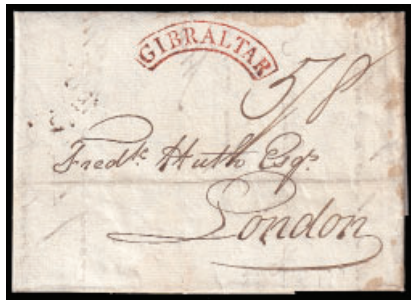 GIBRALTAR
5/8
Fredk. Huth Esqr.
London